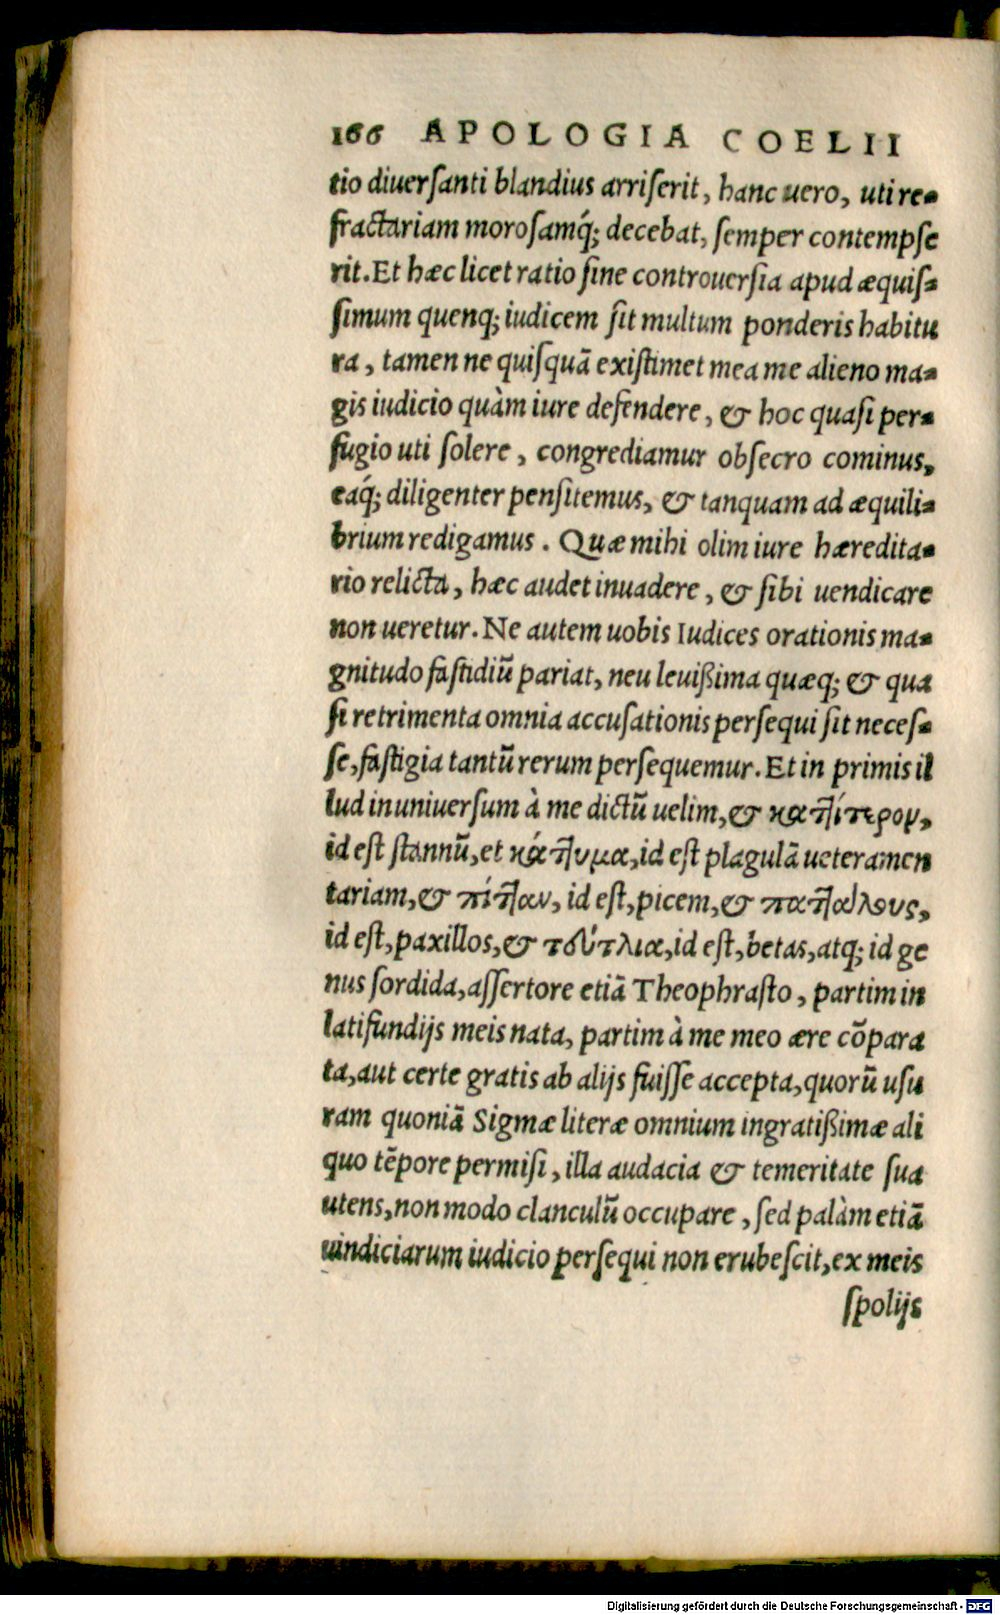 166 APOLOGIA COELII
tio diuersanti blandius arriserit, hanc uero, uti re-
fractariam morosamq́; decebat, semper contempse
rit. Et hæc licet ratio sine controuersia apud æquis-
simum quenq; iudicem sit multum ponderis habitu
ra, tamen ne quisquā existimet mea me alieno ma-
gis iudicio quàm iure defendere, & hoc quasi per-
fugio uti solere, congrediamur obsecro cominus,
eaq́; diligenter pensitemus, & tanquam ad æquili-
brium redigamus. Quæ mihi olim iure hæredita-
rio relicta, hæc audet inuadere, & sibi uendicare
non ueretur. Ne autem uobis Iudices orationis ma-
gnitudo fastidiū pariat, neu leuißima quæq; & qua
si retrimenta omnia accusationis persequi sit neces-
se, fastigia tantū rerum persequemur. Et in primis il
lud in uniuersum à me dictū uelim, & καττίτερον,
id est stannū, et κάττυμα, id est plagulā ueteramen
tariam, & πίτταν, id est, picem, & παττάλους,
id est, paxillos, & τεύτλια, id est, betas, atq; id ge
nus sordida, assertore etiā Theophrasto, partim in
latifundijs meis nata, partim à me meo ære cōpara
ta, aut certe gratis ab alijs fuisse accepta, quorū usu
ram quoniā Sigmæ literæ omnium ingratißimæ ali
quo tēpore permisi, illa audacia & temeritate sua
utens, non modo clanculū occupare, sed palàm etiā
uindiciarum iudicio persequi non erubescit, ex meis
spolijs
Digitalisierung gefördert durch die Deutsche Forschungsgemeinschaft - DFG